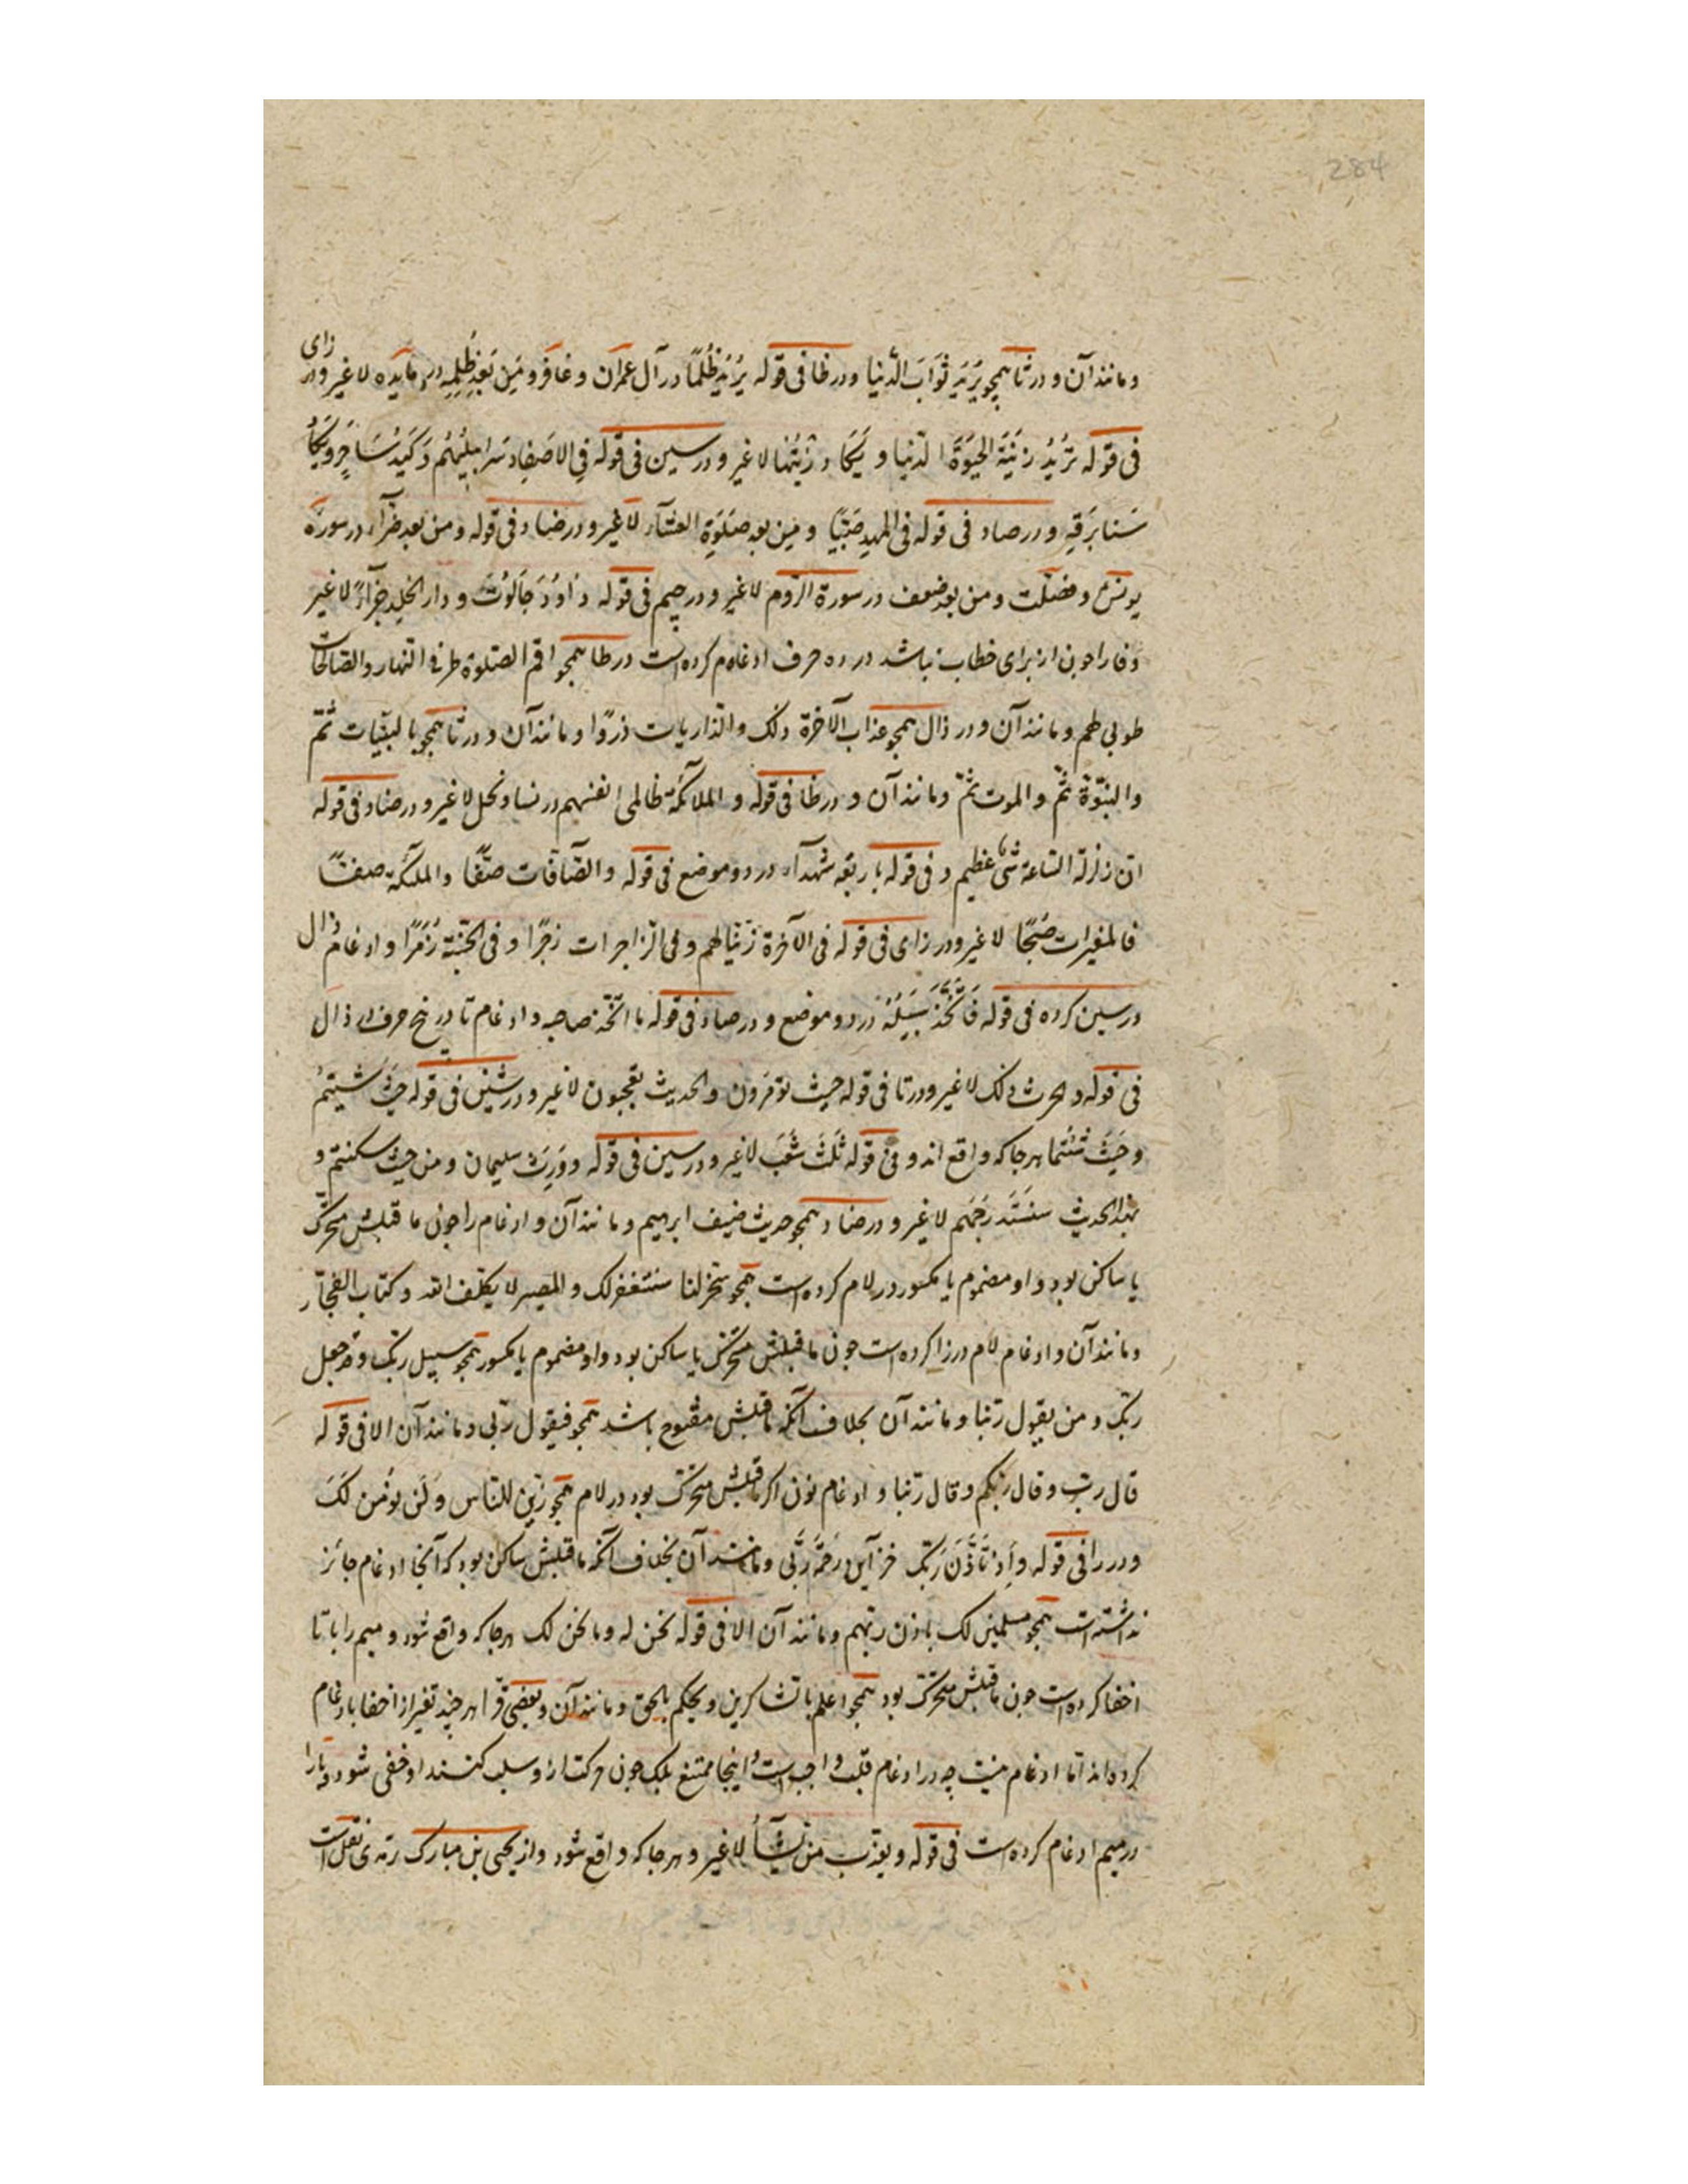 284
ومانند آن و در ثا همچو یُرَید ثَوَابَ الدُّنیا و در ظا فی قوله یُرِیدُ ظُلْمًا در آل عمران و غافر و مِن بَعْدِ ظُلمِهِ در مایده لا غیر و در زای
فی قوله تُرِیدُ زِینَةَ الحَیٰوةَ الدّنیا و یَکَادُ زَیْتُها لا غیر و در سین فی قوله فِی الاَصفِاد سَرَابیلُهُم و کَیدُ سَاحِرٍ و یَکَادُ
سَنا بَرَقِهِ و در صاد فی قوله فی المهد صَبِیًا و مِن بعد صَلوٰةِ العشَآء لا غیر و در ضاد فی قوله و من بعد ضرّآء در سورهٔ
یونس و فصّلت و من بعد ضعف در سورة الروم لا غیر و در جیم فی قوله داوُدَ جَالُوتَ و دار الخلد جزآءً لا غیر
و تا را چون از برای خطاب نباشد در ده حرف ادغام کرده است در طا همچو اقم الصلوة طرفی النهار والصالحات
طوبی لهم و مانند آن و در ذال همچو عذاب الآخرة ذلک والذاریات ذروًا و مانند آن و در ثا همچو بالبیّنات ثمّ
والنبوّة ثمّ والموت ثمّ و مانند آن و در ظا فی قوله و الملآئکة ظالمی انفسهم در نسا و نحل لا غیر و در ضاد فی قوله
انّ زلزلة الساعة شیٔ عظیم و فی قوله باربعة شهدآء در دو موضع فی قوله والصّآفّات صفًّا والملئکة صفًّا
فالمغیرات صُبحًا لا غیر و در زای فی قوله فی الآخرة زیّنا لهم و فی الزاجرات زجرًا و فی الجنّة زُمَرًا و ادغام ذال
در سین کرده فی قوله فَاتَّخَذَ سَبِیلَهُ در دو موضع و در صاد فی قوله ما اتّخذ صاحبه و ادغام ثا در پنج حرف در ذال
فی قوله والحرث ذلک لا غیر و در تا فی قوله حیث تؤمرون والحدیث تعجبون لا غیر و در شین فی قوله حَیثُ شِیتُم
و حَیثُ شِئتُما هرجا که واقع اند و فی قوله ثَلٰثِ شُعَب لا غیر و در سین فی قوله و وَرِثَ سلیمان و من حیث سکنتم و
بهذا الحدیث سنَستَدرِجُهم لا غیر و در ضاد همچو حدیث ضیف ابرهیم و مانند آن و ادغام را چون ما قبلش متحرّک
یا ساکن بود و او مضموم یا مکسور در لام کرده است همچو سخّر لنا سنستغفر لک والمصیر لا یکلّف الله و کتاب الفجّار
و مانند آن و ادغام لام در را کرده است چون ما قبلش متحرّک یا ساکن بود و او مضموم یا مکسور همچو سبیل ربّک و قد جعل
ربّک و من یقول ربّنا و مانند آن بخلاف آنکه ما قبلش مفتوح باشد همچو فیقول ربّی و مانند آن الا فی قوله
قال ربّ و قال ربّکم و قال ربّنا و ادغام نون اکر ما قبلش متحرّک بود در لام همچو زیّن للناس و لَن نؤمِن لَکَ
و در را فی قوله و اِذ تَاَذَّنَ رَبُّک خزآین رَحمَةِ رَبّی و مانند آن بخلاف آنکه ما قبلش ساکن بود که آنجا ادغام جائز
نداشته است همچو مسلمین لک باذن ربّهم و مانند آن الا فی قوله نحن له و ما نحن لک هرجا که واقع شود و میم را با با
اخفا کرده است چون ما قبلش متحرّک بود همچو اعلم بالشاکرین و یحکم بالحق و مانند آن و بعضی قرّا هرچند تعبیر از اخفا بادغام
کرده اند امّا ادغام نیست چه در ادغام قلب واجب است و اینجا ممتنع بلکه چون حرکت از او سلب کنند او خفی شود و با را
در میم ادغام کرده است فی قوله و یعذّب من یشآءُ لا غیر و هرجا که واقع شود و از یحیی بن مبارک یزیدی نقل است